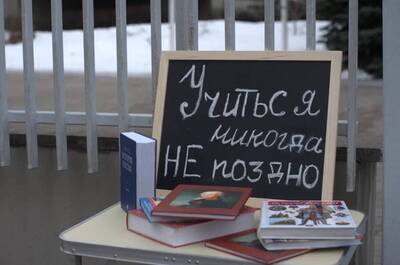 Учиться
никогда
НЕ поздно